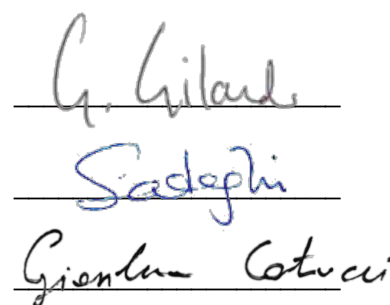 G. Gilardi
Sadeghi
Gianluca Catucci